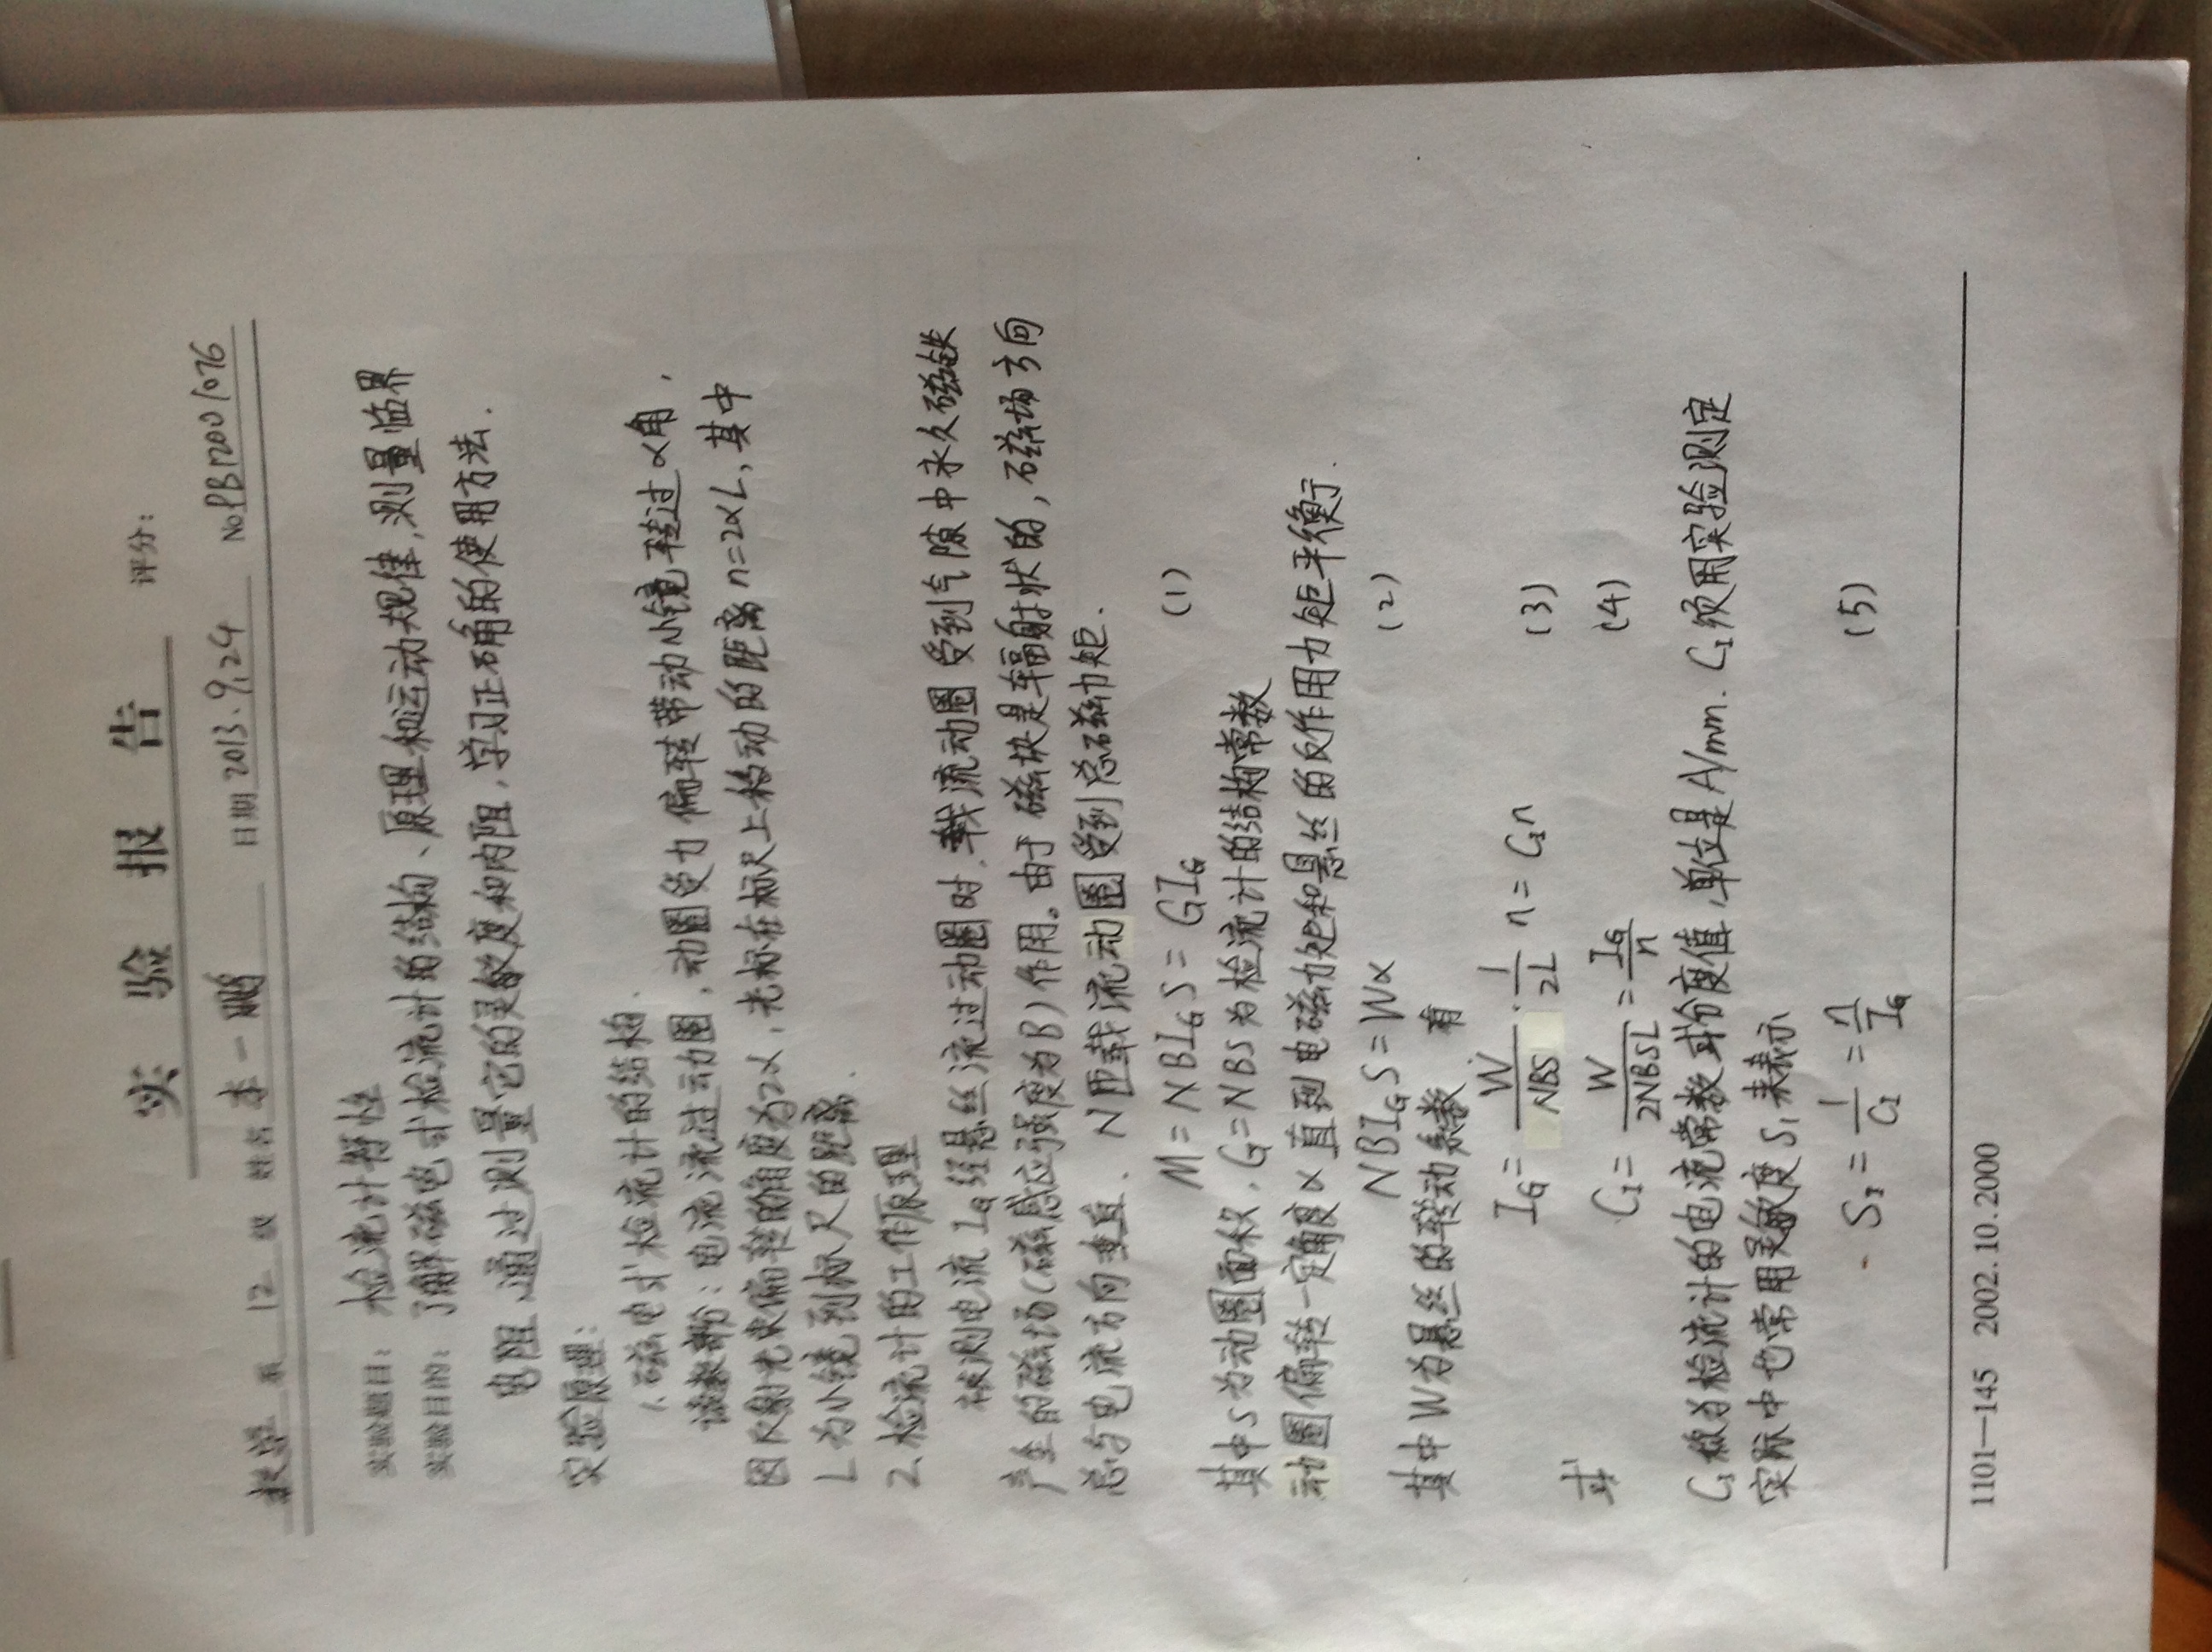 实验报告 评分:
数学 系 12 级 姓名 李一鹏 日期 2013.9.24 No PB12001076
实验题目: 检流计特性
实验目的: 了解磁电式检流计的结构、原理和运动规律,测量临界
电阻、通过测量它的灵敏度和内阻,学习正确的使用方法.
实验原理:
1.磁电式检流计的结构.
读数部分:电流流过动圈,动圈受力偏转带动小镜转过α角,
因反射光束偏转的角度为2α,光标在标尺上移动的距离n=2αL,其中
L为小镜到标尺的距离.
2.检流计的工作原理
被测电流 I_G 经悬丝流过动圈时.载流动圈受到气隙中永久磁铁
产生的磁场(磁感应强度为B)作用。由于磁块是辐射状的,磁场方向
总与电流方向垂直. N匝载流动圈受到总磁力矩.
M = NBI_G S = GI_G (1)
其中S为动圈面积,G=NBS为检流计的结构常数
动圈偏转一定角度α直到电磁力矩和悬丝的反作用力矩平衡于.
NBI_G S = Wα (2)
其中W为悬丝的转动系数.有
I_G = W/NBS · 1/2L n = C_I n (3)
或
C_I = W/2NBSL = I_G/n (4)
C_I称为检流计的电流常数或分度值,单位是A/mm. C_I须用实验测定
实际中也常用灵敏度S_I来表示
S_I = 1/C_I = n/I_G (5)
1101—145 2002.10.2000